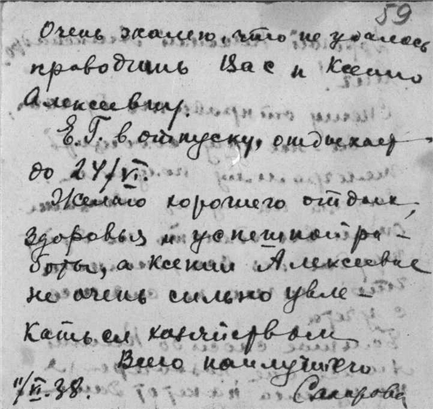 59
Очень жалею, что не удалось
проводить Вас и Ксению
Алексеевну.
Е.Г. в отпуску, отдыхает
до 24/VI.
Желаю хорошего отдыха,
здоровья и успешной ра-
боты, а Ксении Алексеевне
не очень сильно увле-
каться хозяйством
Всего наилучшего
11/VI.38.